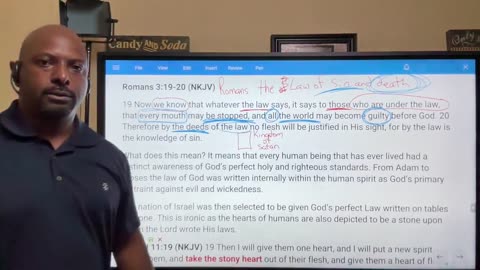 CANDY AND SODA
File View Insert Review Pen
Romans 3:19-20 (NKJV) Romans the Law of Sin and death
19 Now we know that whatever the law says, it says to those who are under the law,
that every mouth may be stopped, and all the world may become guilty before God. 20
Therefore by the deeds of the law no flesh will be justified in His sight, for by the law is
the knowledge of sin.
Kingdom
of
Satan
What does this mean? It means that every human being that has ever lived had a
stinct awareness of God's perfect holy and righteous standards. From Adam to
oses the law of God was written internally within the human spirit as God's primary
straint against evil and wickedness.
nation of Israel was then selected to be given God's perfect Law written on tables
one. This is ironic as the hearts of humans are also depicted to be a stone upon
h the Lord wrote His laws.
11:19 (NKJV) 19 Then I will give them one heart, and I will put a new spirit
them, and take the stony heart out of their flesh, and give them a heart of fl